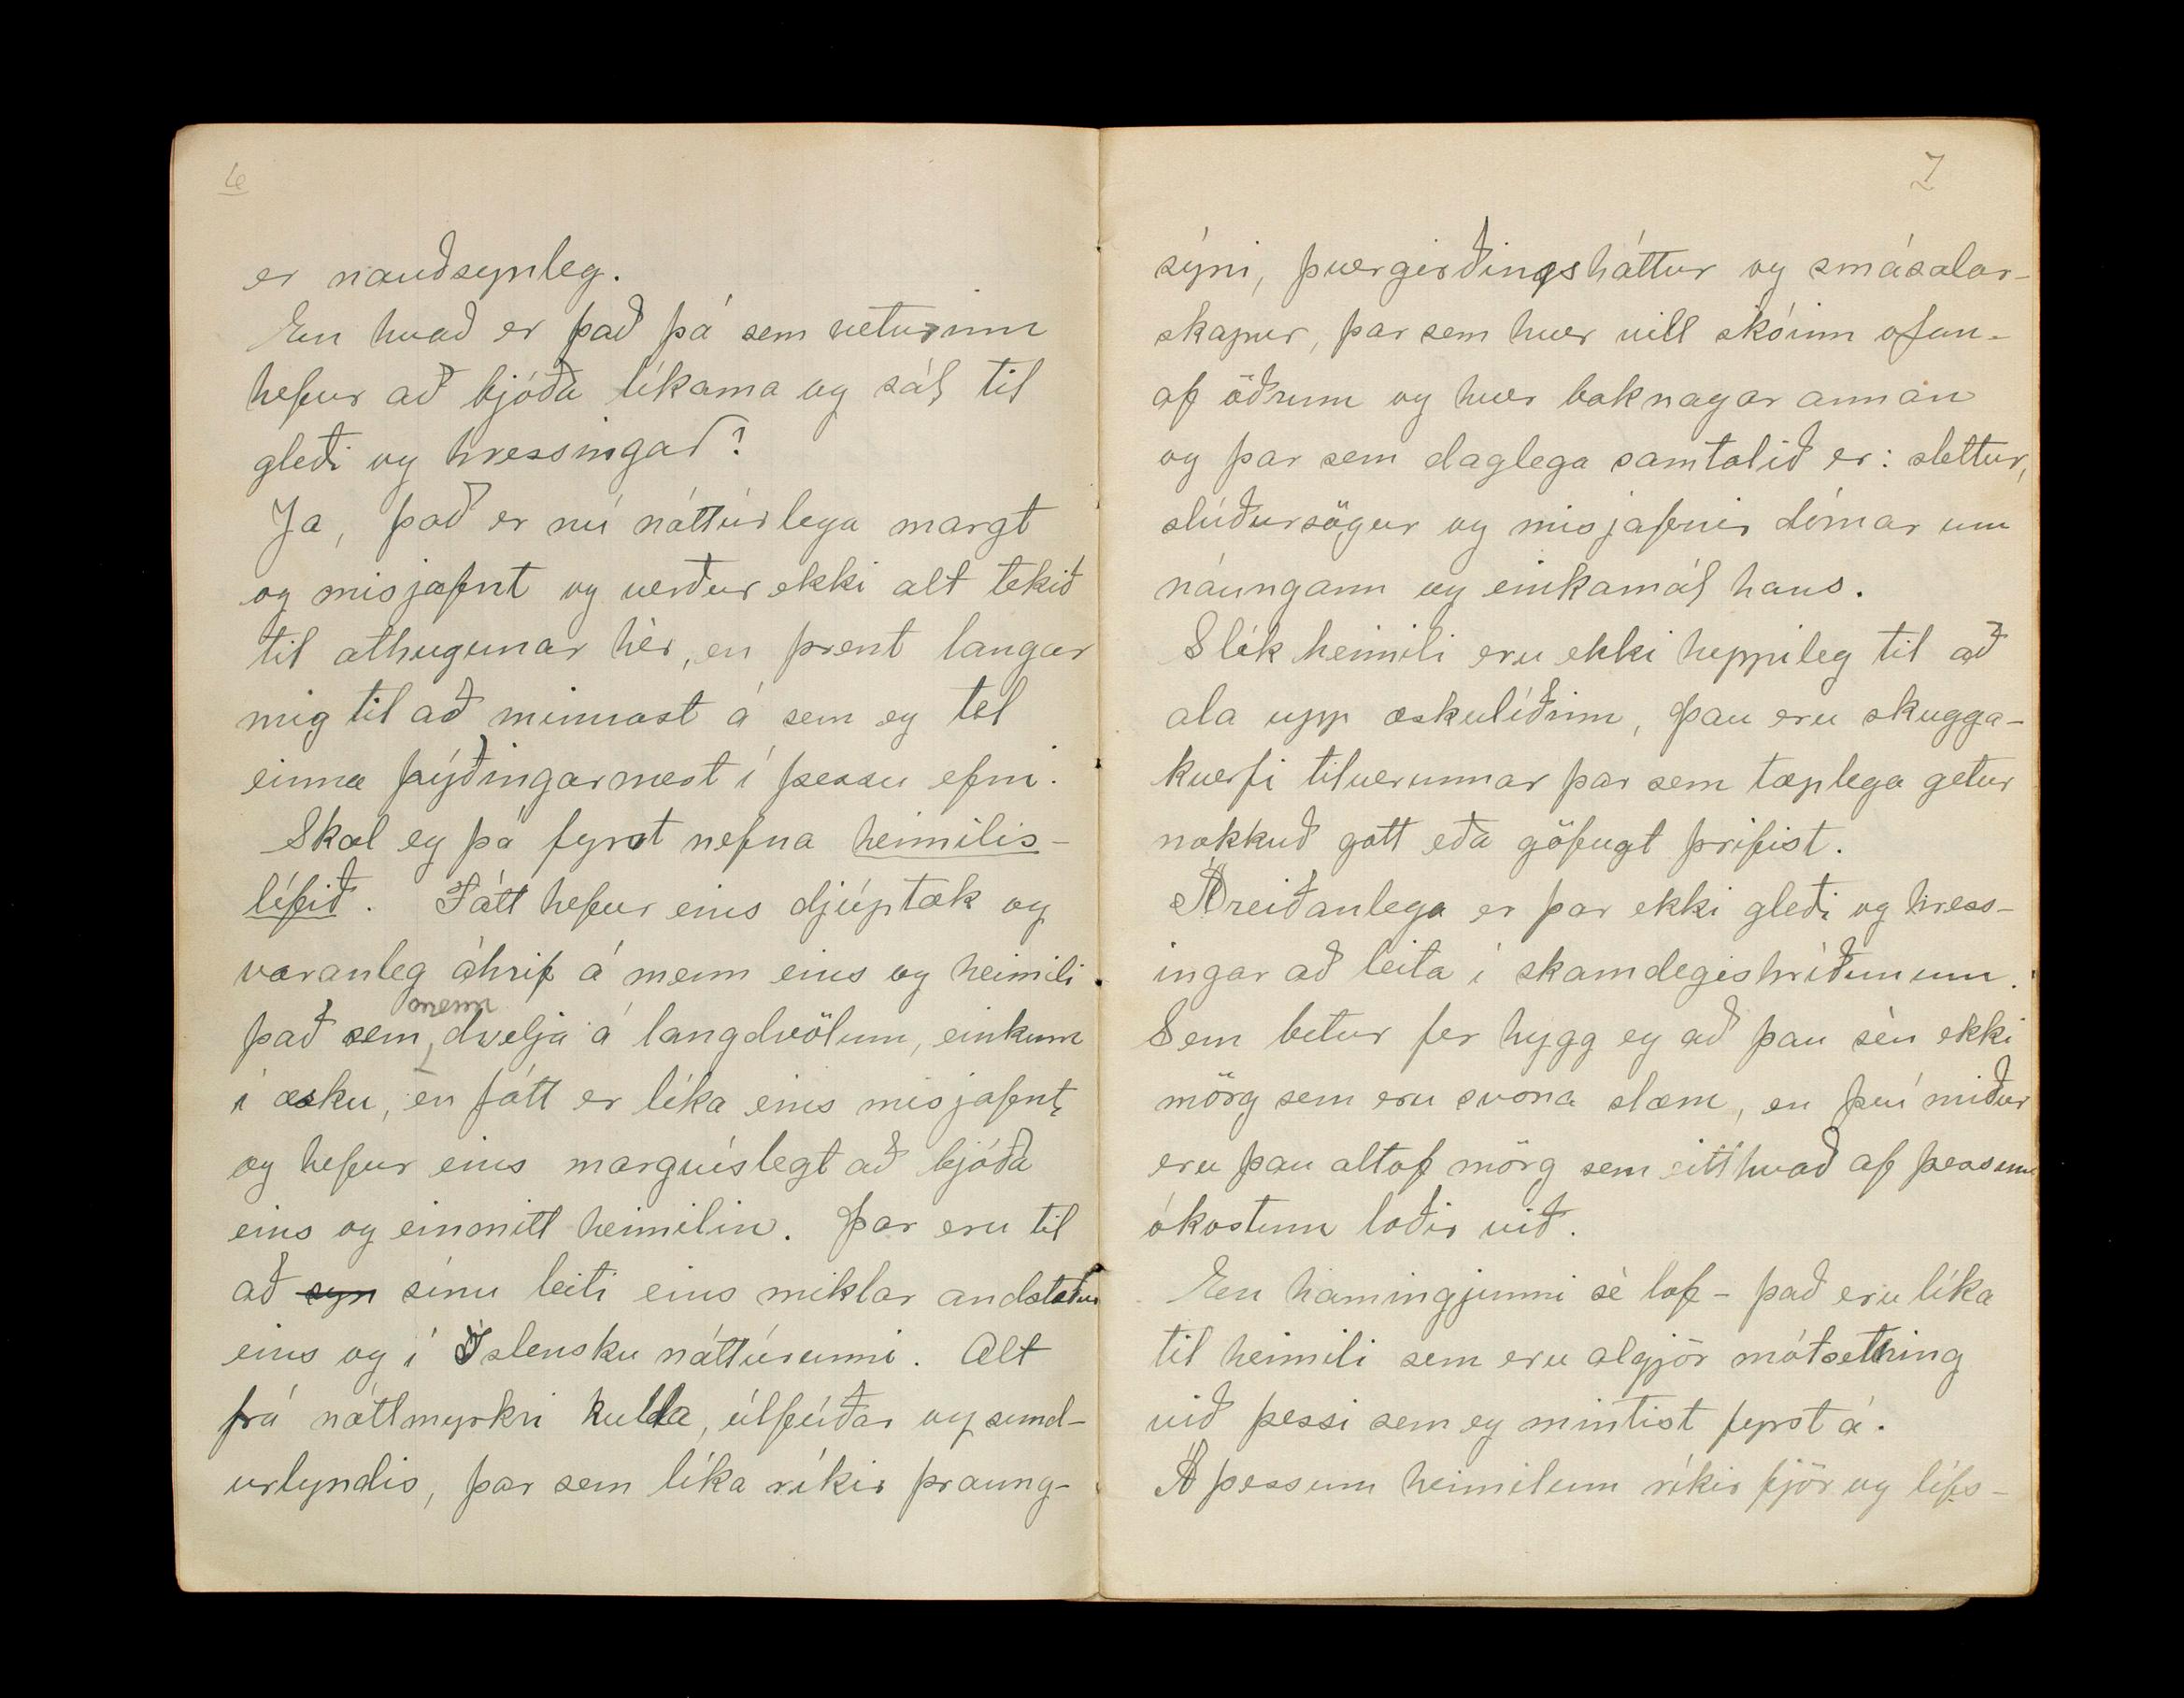 6
er nauðsynleg.
En hvað er það þá sem veturinn
hefur að bjóða líkama og sál til
gleði og hressingar?
Ja, það er nú náttúrlega margt
og misjafnt og verður ekki alt tekið
til athugunar hèr, en þrent langar
mig til að minnast á sem eg tel
einna þýðingarmest í þessu efni.
Skal eg þá fyrst nefna heimilis-
lífið. Fátt hefur eins djúptæk og
varanleg áhrif á menn eins og heimili
það sem menn dvelja á langdvölum, einkum
í æsku, en fátt er líka eins misjafnt,
og hefur eins margvíslegt að bjóða
eins og einmitt heimilin. Þar eru til
að syn sínu leiti eins miklar andstæður
eins og í Íslensku náttúrunni. Alt
frá náttmyrkri kulda, úlfúðar og sund-
urlyndis, þar sem líka ríkir þraung-
7
sýni, þvergirðingsháttur og smásalar-
skapur, þar sem hver vill skóinn ofan-
af öðrum og hver baknagar annan
og þar sem daglega samtalið er: slettur,
slúðursögur og misjafnir dómar um
náungann og einkamál hans.
Slík heimili eru ekki heppileg til að
ala upp æskulíðinn, þau eru skugga-
hverfi tilverunnar þar sem tæplega getur
nokkuð gott eða göfugt þrifist.
Áreiðanlega er þar ekki gleði og hress-
ingar að leita í skamdegishríðunum.
Sem betur fer hygg eg að þau sèu ekki
mörg sem eru svona slæm, en því miður
eru þau altof mörg sem eitthvað af þessum
ókostum loðir við.
En hamingjunni sè lof - það eru líka
til heimili sem eru algjör mótsetning
við þessi sem eg mintist fyrst á.
Á þessum heimilum ríkir fjör og lífs-